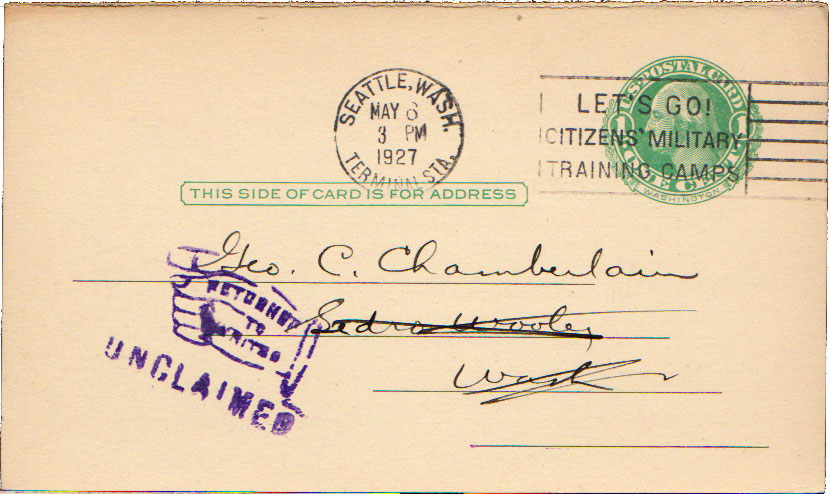 SEATTLE, WASH.
MAY 6
3 PM
1927
TERMINAL STA.
U.S. POSTAL CARD
1 1
ONE CENT
WASHINGTON
LET'S GO!
CITIZENS' MILITARY
TRAINING CAMPS
THIS SIDE OF CARD IS FOR ADDRESS
Geo. C. Chamberlain
Sedro Wooley
Wash
RETURNED
TO
WRITER
UNCLAIMED